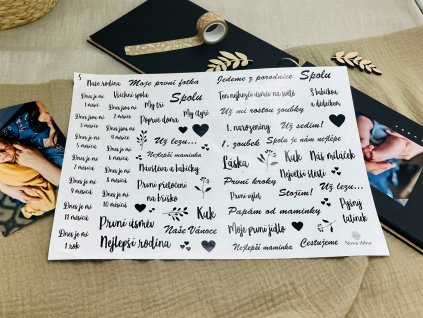 5
Naše rodina
Moje první fotka
Jedeme z porodnice
Spolu
Dnes je mi
1 měsíc
Všichni spolu
My tři
Spolu
Ten nejhezčí úsměv na světě
S babičkou
a dědečkem
Dnes jsou mi
2 měsíce
My čtyři
Už mi rostou zoubky
Dnes jsou mi
3 měsíce
Poprvé doma
1. narozeniny
Už sedím!
Dnes jsou mi
4 měsíce
Už lezu...
1. zoubek
Spolu je nám nejlépe
Dnes je mi
5 měsíců
Nejlepší maminka
Láska
Kuk
Náš miláček
Dnes je mi
6 měsíců
Návštěva u babičky
Největší štěstí
Dnes je mi
7 měsíců
První kroky
Už lezu...
Dnes je mi
8 měsíců
První přetočení
na bříško
První výlet
Stojím!
Dnes je mi
9 měsíců
Papám od maminky
Pyšný
tatínek
Dnes je mi
10 měsíců
Kuk
Dnes je mi
11 měsíců
První úsměv
Naše Vánoce
Moje první jídlo
Dnes je mi
1 rok
Nejlepší rodina
Nejlepší maminka
Cestujeme
Nová dílna